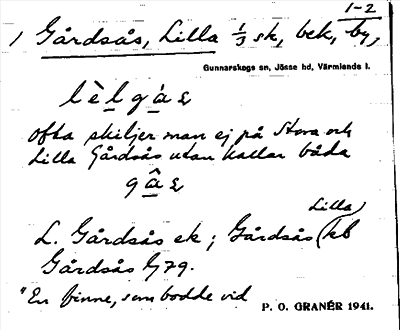 1-2
1 Gårdsås, Lilla 1/3 sk, bek, by,
Gunnarskogs sn, Jösse hd, Värmlands l.
Ofta skiljer man ej på Stora och
Lilla Gårdsås utan kallar båda
Lilla
L. Gårdsås ek; Gårdsås (kb
Gårdsås 1779.
"En finne, som bodde vid
P. O. GRANÉR 1941.